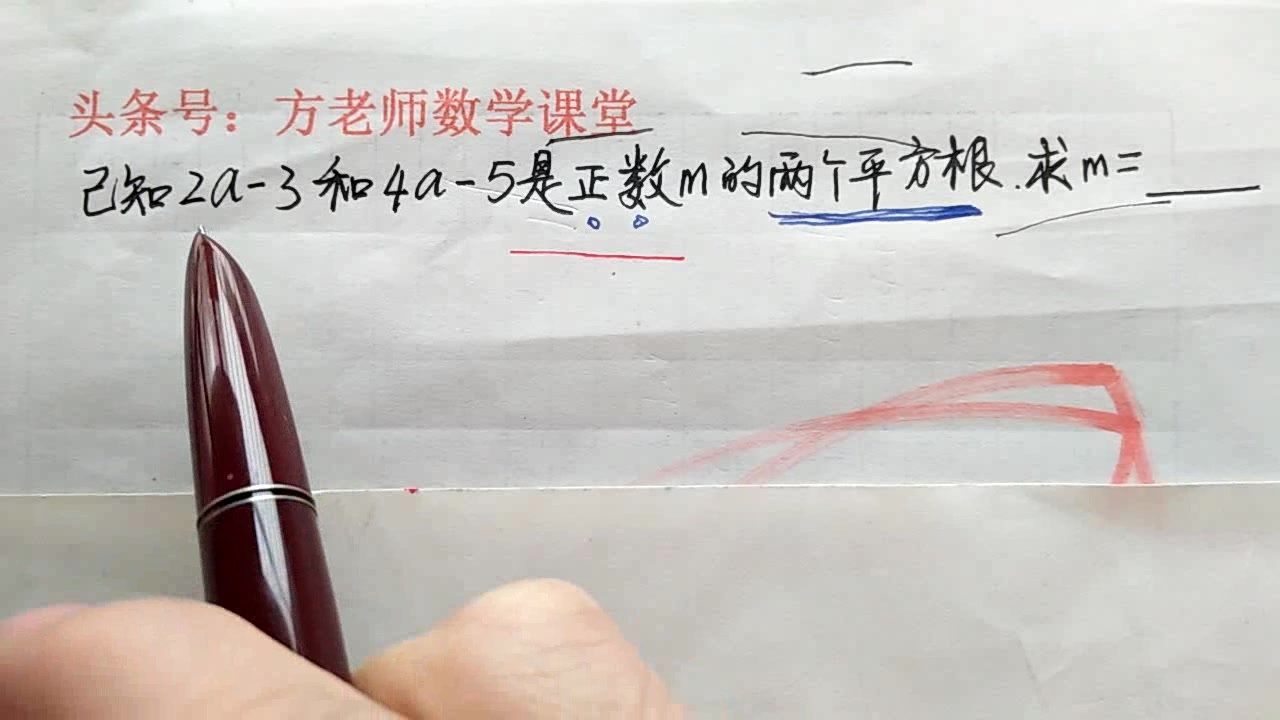 头条号：方老师数学课堂
已知2a-3和4a-5是正数m的两个平方根.求m=____